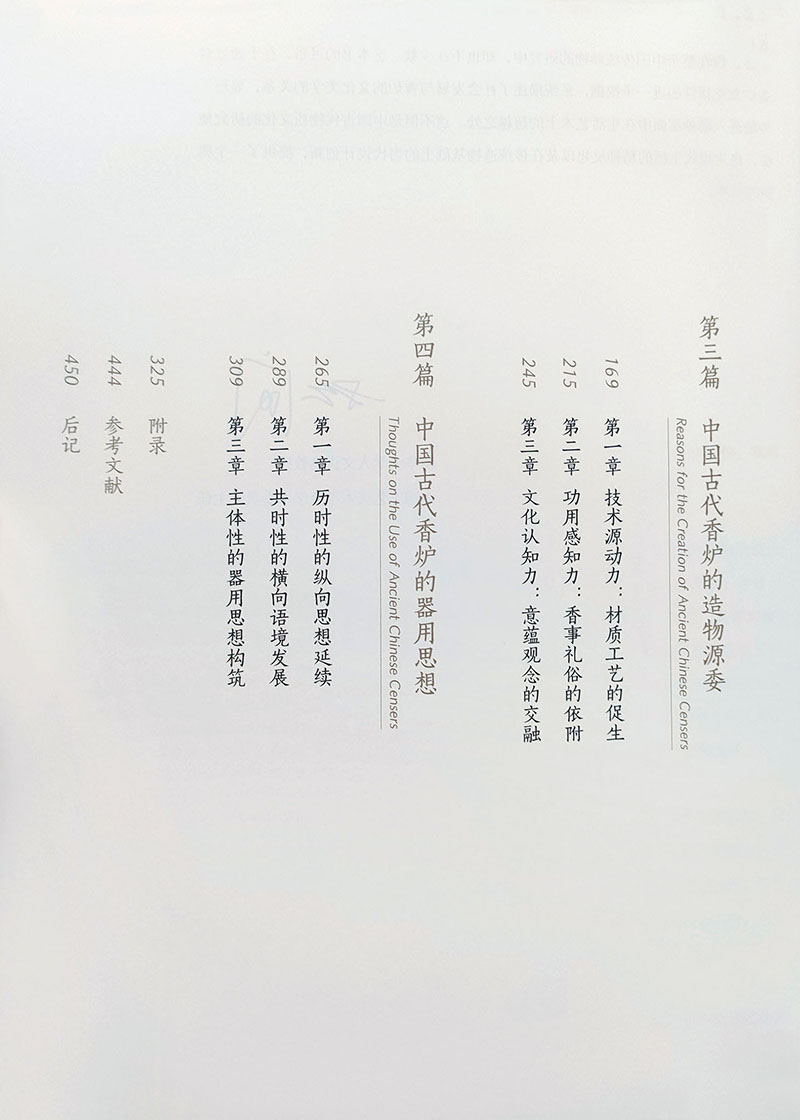 第三篇 中国古代香炉的造物源委
Reasons for the Creation of Ancient Chinese Censers
169 第一章 技术源动力：材质工艺的促生
215 第二章 功用感知力：香事礼俗的依附
245 第三章 文化认知力：意蕴观念的交融
第四篇 中国古代香炉的器用思想
Thoughts on the Use of Ancient Chinese Censers
265 第一章 历时性的纵向思想延续
289 第二章 共时性的横向语境发展
309 第三章 主体性的器用思想构筑
325 附录
444 参考文献
450 后记